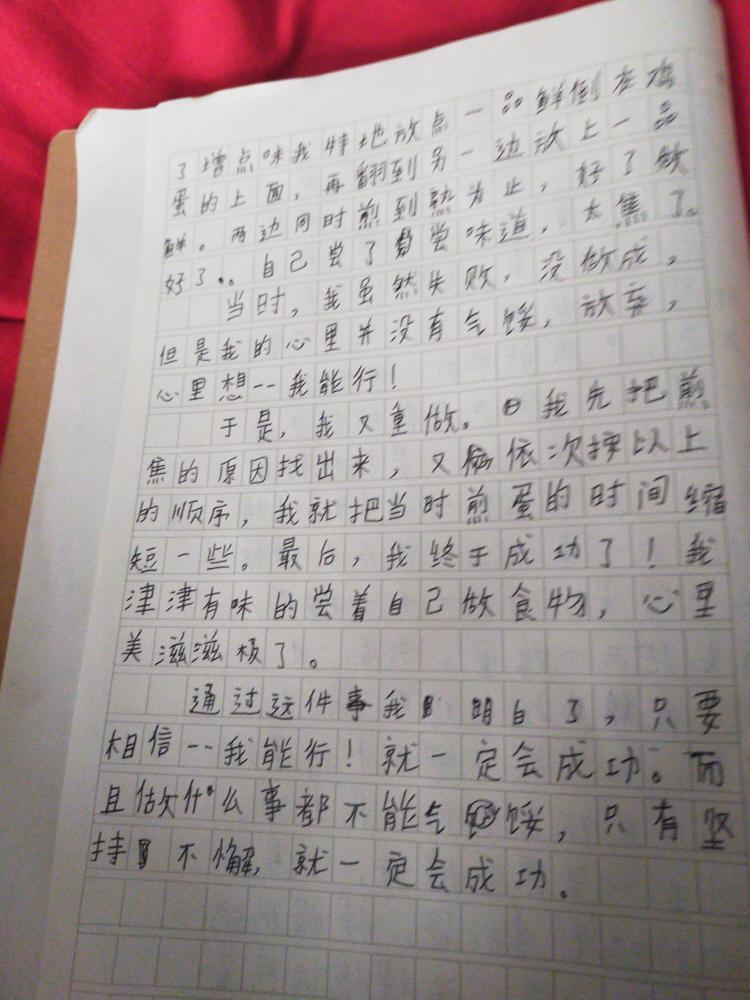 了增点味我特地放点一品鲜倒在鸡
蛋的上面，再翻到另一边放上一品
鲜。两边同时煎到熟为止，好了做
好了。自己尝了尝味道，太焦了。
当时，我虽然失败，没做成，
但是我的心里并没有气馁，放弃，
心里想--我能行！
于是，我又重做。我先把煎
焦的原因找出来，又依次按以上
的顺序，我就把当时煎蛋的时间缩
短一些。最后，我终于成功了！我
津津有味的尝着自己做食物，心里
美滋滋极了。
通过这件事我明白了，只要
相信--我能行！就一定会成功。而
且做什么事都不能气馁，只有坚
持不懈，就一定会成功。